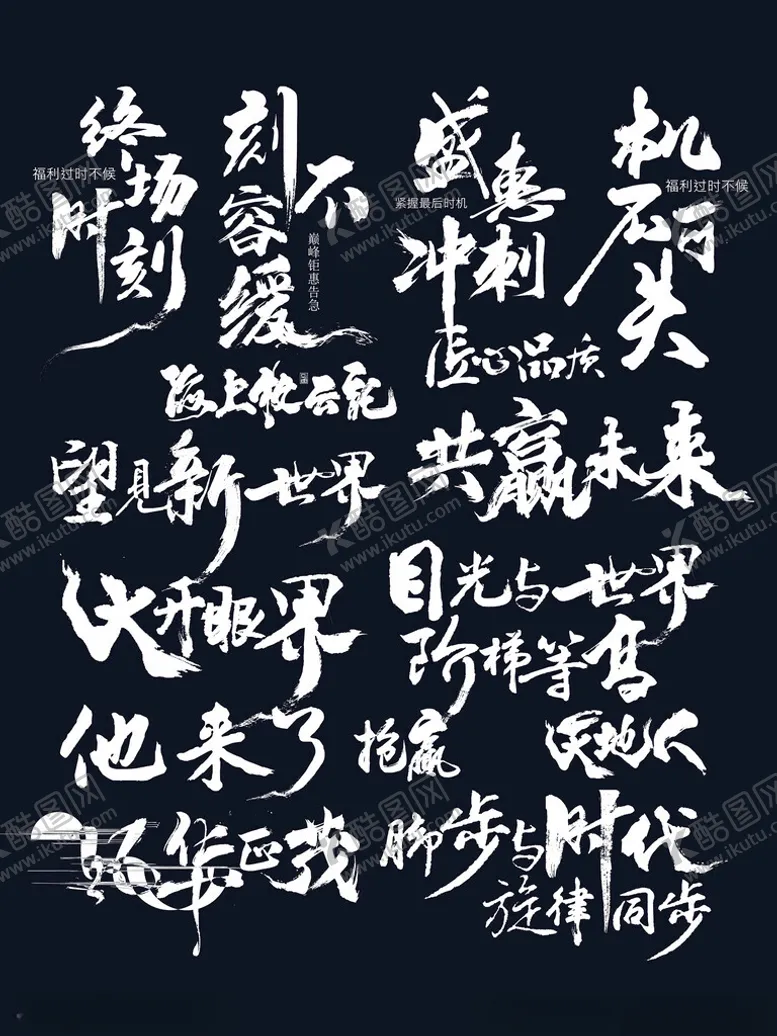 终场
时刻
福利过时不候
刻不
容缓
巅峰钜惠告急
盛惠
冲刺
紧握最后时机
机不
可失
福利过时不候
匠心品质
海上牧云記
望見新世界
共赢未来
大开眼界
目光与世界
阶梯等高
他来了
抢赢
天地人
风华正茂
脚步与时代
旋律同步
酷图网
www.ikutu.com